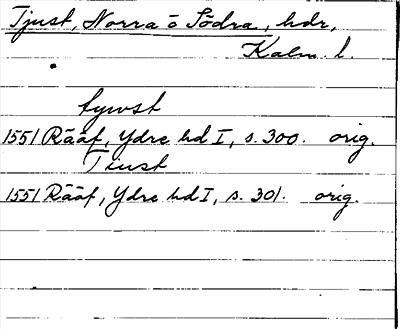 Tjust, Norra o Södra, hdr,
Kalm. l.
tywst
1551 Rääf, Ydre hd I, s. 300. orig.
Tiust
1551 Rääf, Ydre hd I, s. 301. orig.